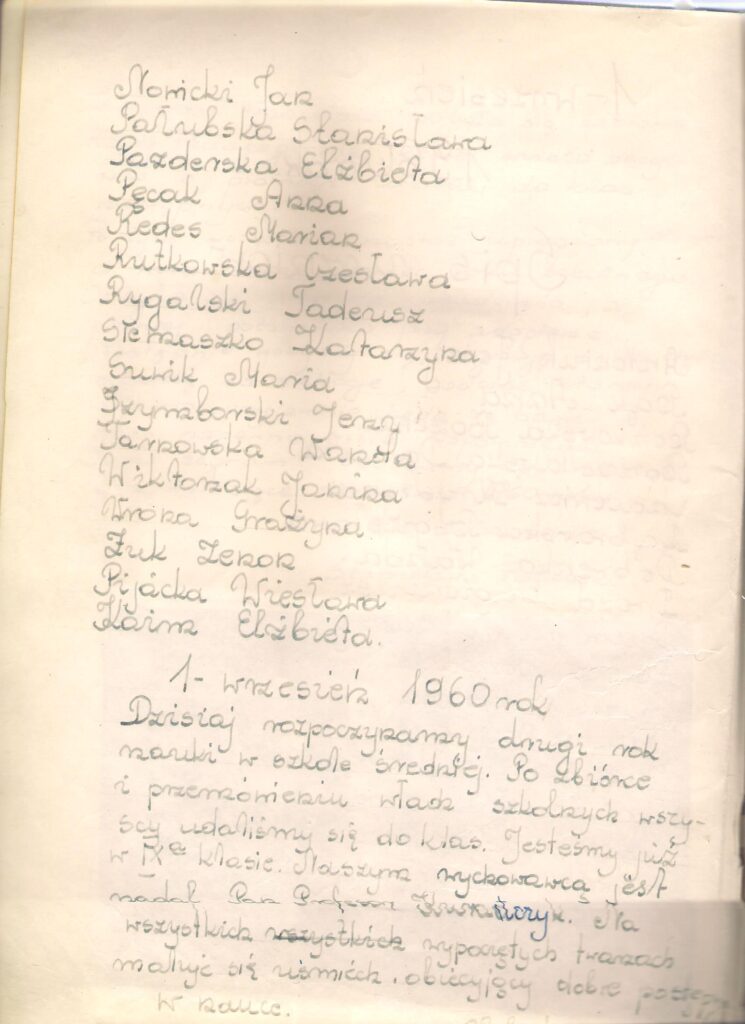 Nowicki Jan
Pałubska Stanisława
Pazderska Elżbieta
Pęcak Anna
Redes Marian
Rutkowska Czesława
Rygalski Tadeusz
Siemaszko Katarzyna
Surik Maria
Szymborski Jerzy
Tarnowska Wanda
Wiktorzak Janina
Wrona Grażyna
Żuk Zenon
Pijácka Wiesława
Kaim Elżbieta.
1- wrzesień 1960 rok
Dzisiaj rozpoczynamy drugi rok
nauki w szkole średniej. Po zbiórce
i przemówieniu władz szkolnych wszy-
scy udaliśmy się do klas. Jesteśmy już
w IXa klasie. Naszym wychowawcą jest
nadal Pan Profesor. Na
wszystkich wszystkich wypoczętych twarzach
maluje się uśmiech, obiecujący dobre postępy
w nauce.